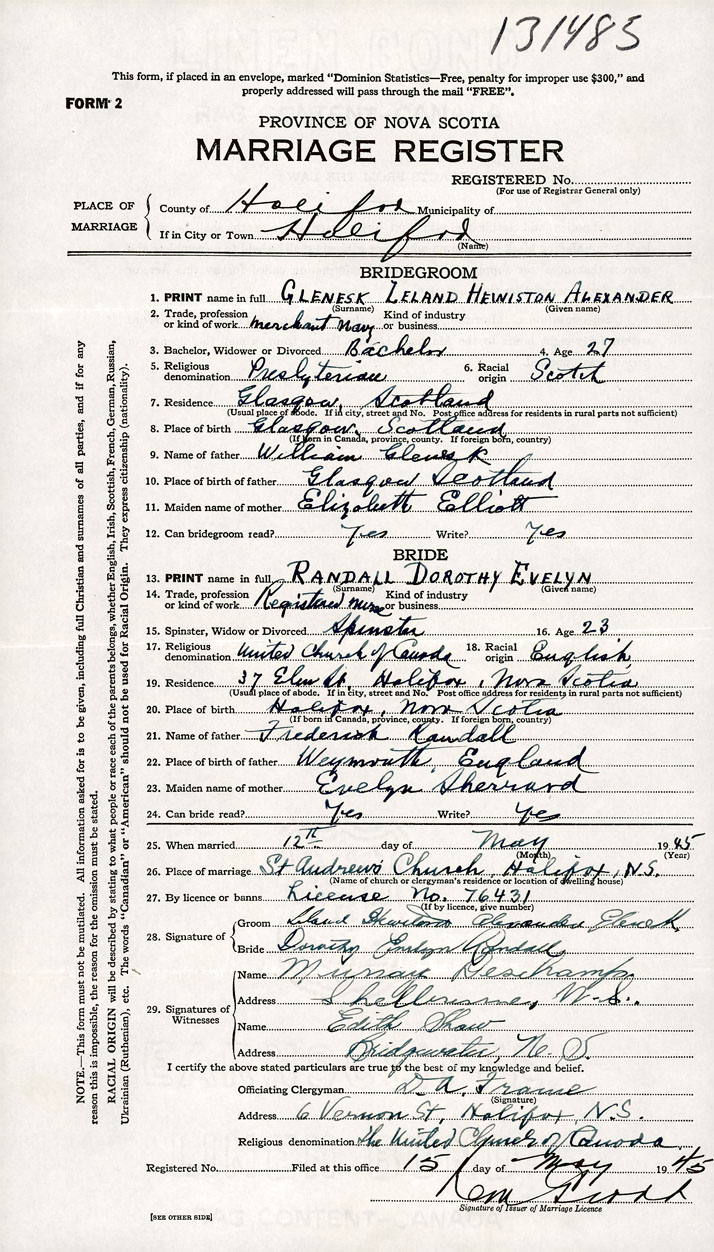 131485
This form, if placed in an envelope, marked “Dominion Statistics—Free, penalty for improper use $300,” and
properly addressed will pass through the mail “FREE”.
FORM 2
PROVINCE OF NOVA SCOTIA
MARRIAGE REGISTER
REGISTERED No.
(For use of Registrar General only)
PLACE OF MARRIAGE
County of Halifax Municipality of
If in City or Town Halifax
(Name)
BRIDEGROOM
1. PRINT name in full GLENESK LELAND HEWISTON ALEXANDER
(Surname) (Given name)
2. Trade, profession or kind of work merchant navy Kind of industry or business
3. Bachelor, Widower or Divorced Bachelor 4. Age 27
5. Religious denomination Presbyterian 6. Racial origin Scotch
7. Residence Glasgow, Scotland
(Usual place of abode. If in city, street and No. Post office address for residents in rural parts not sufficient)
8. Place of birth Glasgow, Scotland
(If born in Canada, province, county. If foreign born, country)
9. Name of father William Glenesk
10. Place of birth of father Glasgow Scotland
11. Maiden name of mother Elizabeth Elliott
12. Can bridegroom read? Yes Write? Yes
BRIDE
13. PRINT name in full RANDALL DOROTHY EVELYN
(Surname) (Given name)
14. Trade, profession or kind of work Registered nurse Kind of industry or business
15. Spinster, Widow or Divorced Spinster 16. Age 23
17. Religious denomination United Church of Canada 18. Racial origin English
19. Residence 37 Elm St. Halifax, Nova Scotia
(Usual place of abode. If in city, street and No. Post office address for residents in rural parts not sufficient)
20. Place of birth Halifax, Nova Scotia
(If born in Canada, province, county. If foreign born, country)
21. Name of father Frederick Randall
22. Place of birth of father Weymouth, England
23. Maiden name of mother Evelyn Sherrard
24. Can bride read? Yes Write? Yes
25. When married 12th day of May 1945
(Month) (Year)
26. Place of marriage St Andrew's Church, Halifax, N.S.
(Name of church or clergyman's residence or location of dwelling house)
27. By licence or banns License No. 76431
(If by licence, give number)
28. Signature of
Groom Leland Hewiston Alexander Glenesk
Bride Dorothy Evelyn Randall
29. Signatures of Witnesses
Name Murray Deschamp
Address Shelburne, N.S.
Name Edith Shaw
Address Bridgwater, N.S.
I certify the above stated particulars are true to the best of my knowledge and belief.
Officiating Clergyman D. A. Frame
(Signature)
Address 6 Vernon St, Halifax N.S.
Religious denomination The United Church of Canada
Registered No. Filed at this office 15 day of May 1945
Signature of Issuer of Marriage Licence
[SEE OTHER SIDE]
NOTE.—This form must not be mutilated. All information asked for is to be given, including full Christian and surnames of all parties, and if for any
reason this is impossible, the reason for the omission must be stated.
RACIAL ORIGIN will be described by stating to what people or race each of the parents belongs, whether English, Irish, Scottish, French, German, Russian,
Ukrainian (Ruthenian), etc. The words “Canadian” or “American” should not be used for Racial Origin. They express citizenship (nationality).